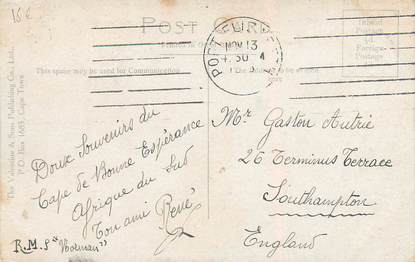 16€
POST CARD
Printed in
This space may be used for Communication
The
to be
here
Inland
Postage
Foreign
Postage
The Valentine & Sons Publishing Co., Ltd.
P.O. Box 1685, Cape Town
NOV 13
Doux Souvenirs du
Cape de Bonne Espérance
Afrique du Sud
Ton ami René
R.M.S "Norman"
Mr Gaston Autrie
26 Terminus Terrace
Southampton
England